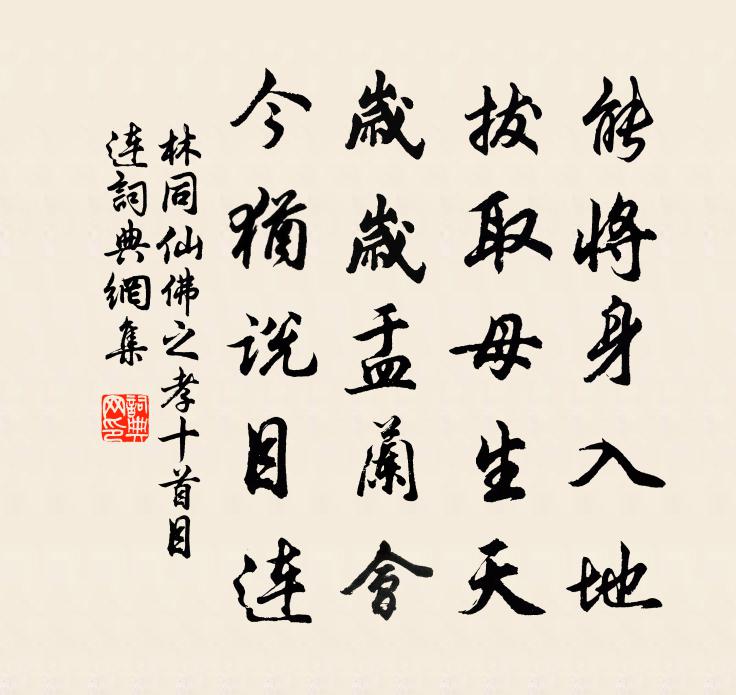 能將身入地
拔取母生天
歲歲盂蘭會
今猶說目連
林同仙佛之孝十首目
連詞典網集
詞典
网印